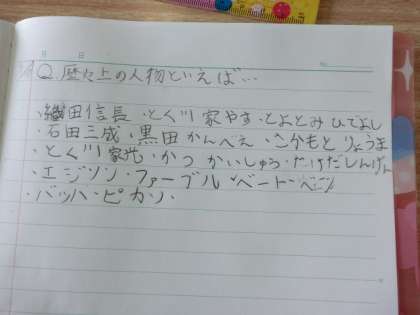 Q. 歴史上の人物といえば…
・織田信長・とく川家やす・とよとみひでよし
・石田三成・黒田かんべえ・さかもとりょうま
・とく川家光・かつかいしゅう・たけだしんげん
・エジソン・ファーブル・ベートーベン
・バッハ・ピカソ・